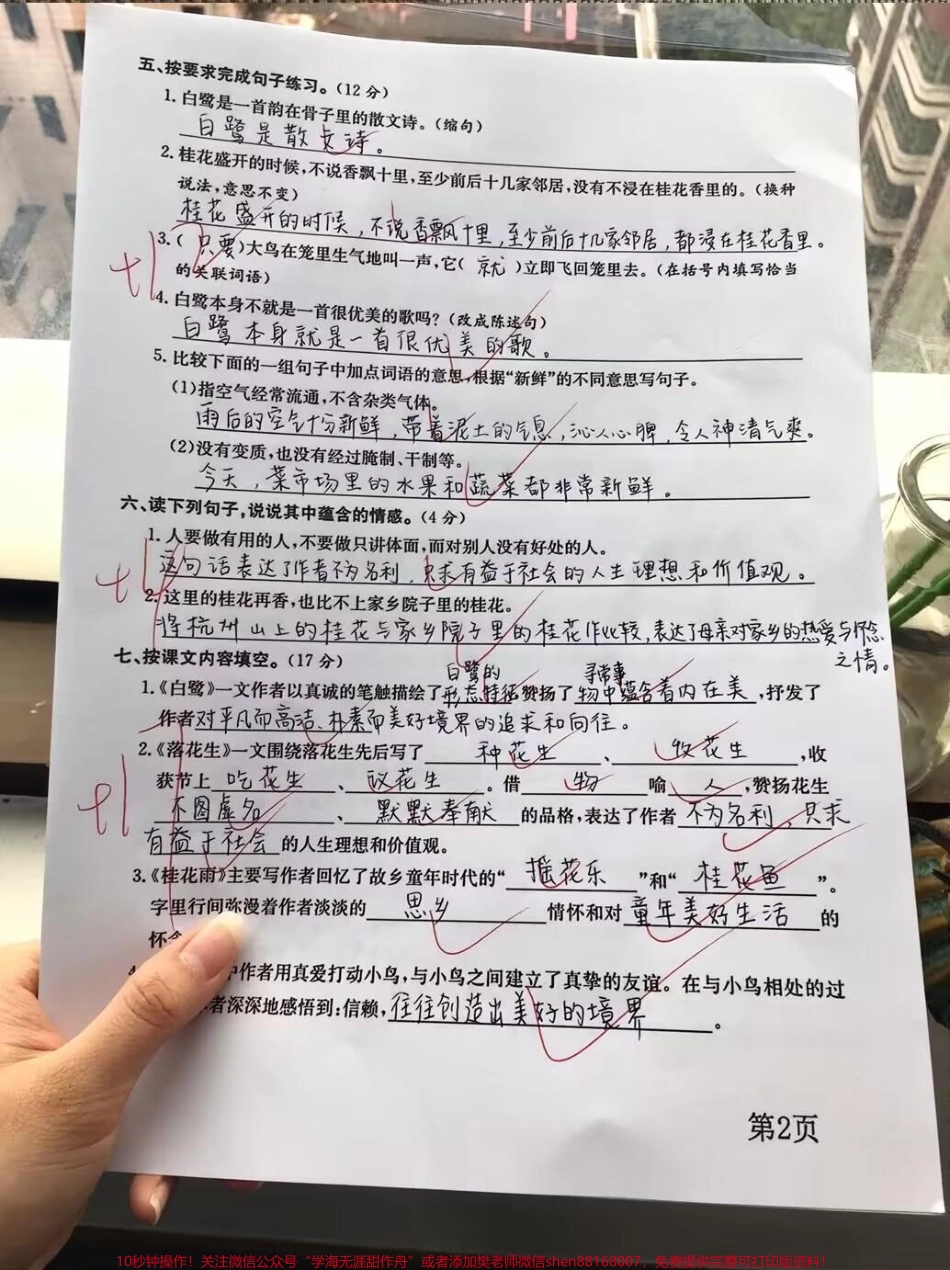 五、按要求完成句子练习。(12分)
1. 白鹭是一首韵在骨子里的散文诗。(缩句)
白鹭是散文诗。
2. 桂花盛开的时候,不说香飘十里,至少前后十几家邻居,没有不浸在桂花香里的。(换种
说法,意思不变)
桂花盛开的时候,不说香飘十里,至少前后十几家邻居,都浸在桂花香里。
3.( 只要 )大鸟在笼里生气地叫一声,它( 就 )立即飞回笼里去。(在括号内填写恰当
的关联词语)
4. 白鹭本身不就是一首很优美的歌吗?(改成陈述句)
白鹭本身就是一首很优美的歌。
5. 比较下面的一组句子中加点词语的意思,根据“新鲜”的不同意思写句子。
(1)指空气经常流通,不含杂类气体。
雨后的空气十分新鲜,带着泥土的气息,沁人心脾,令人神清气爽。
(2)没有变质,也没有经过腌制、干制等。
今天,菜市场里的水果和蔬菜都非常新鲜。
六、读下列句子,说说其中蕴含的情感。(4分)
1. 人要做有用的人,不要做只讲体面,而对别人没有好处的人。
这句话表达了作者不为名利,只求有益于社会的人生理想和价值观。
2. 这里的桂花再香,也比不上家乡院子里的桂花。
将杭州山上的桂花与家乡院子里的桂花作比较,表达了母亲对家乡的热爱与怀念
之情。
七、按课文内容填空。(17分)
白鹭的 寻常事
1.《白鹭》一文作者以真诚的笔触描绘了形态特征赞扬了物中蕴含着内在美,抒发了
作者对平凡而高洁、朴素而美好境界的追求和向往。
2.《落花生》一文围绕落花生先后写了 种花生 、 收花生 ,收
获节上 吃花生 、 议花生 。借 物 喻 人 ,赞扬花生
不图虚名 、 默默奉献 的品格,表达了作者 不为名利,只求
有益于社会 的人生理想和价值观。
3.《桂花雨》主要写作者回忆了故乡童年时代的“ 摇花乐 ”和“ 桂花鱼 ”。
字里行间弥漫着作者淡淡的 思乡 情怀和对 童年美好生活 的
怀
中作者用真爱打动小鸟,与小鸟之间建立了真挚的友谊。在与小鸟相处的过
者深深地感悟到:信赖,往往创造出美好的境界。
第2页
10秒钟操作!关注微信公众号“学海无涯甜作舟”或者添加樊老师微信shen88168007,免费提供完整可打印版资料!